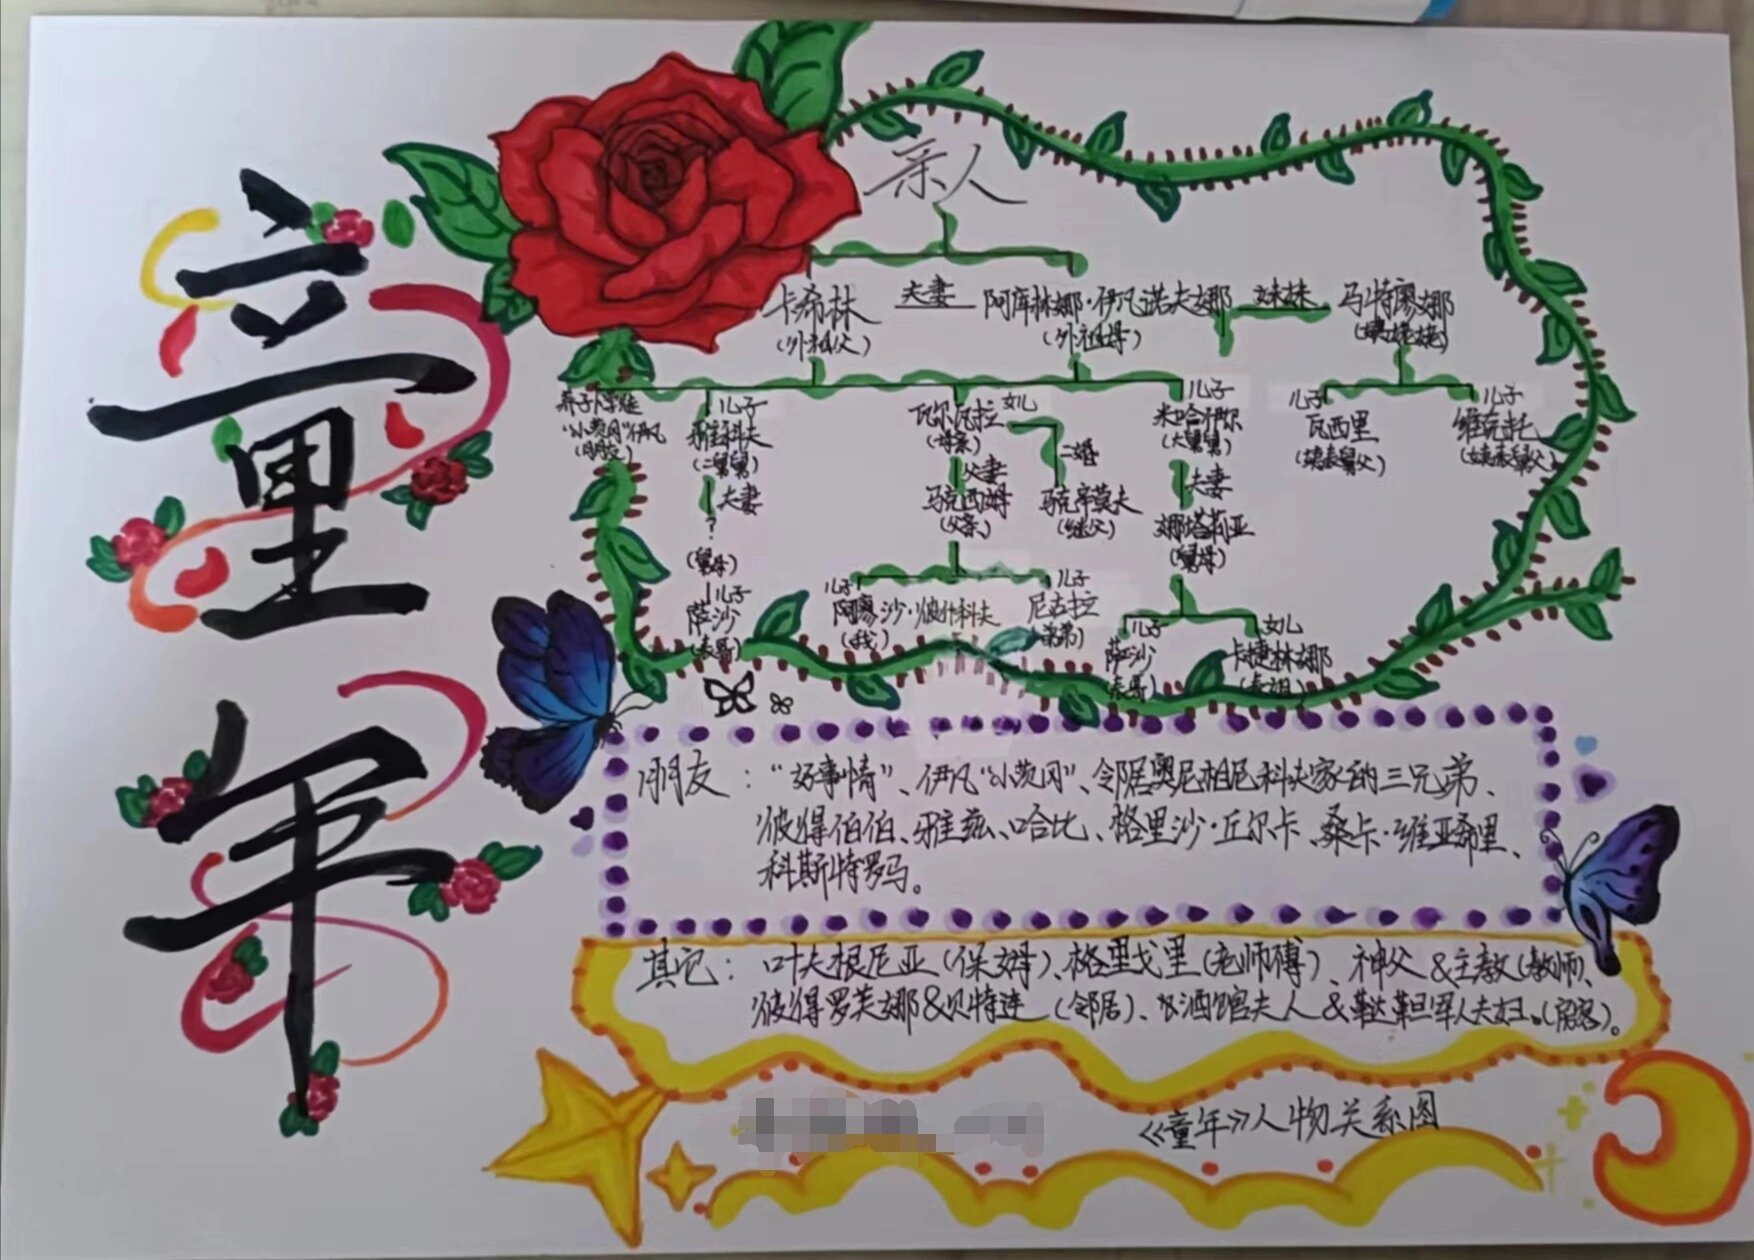 童年
亲人
卡希林 夫妻 阿库林娜·伊凡诺夫娜 妹妹 马特廖娜
(外祖父) (外祖母) (姨姥姥)
儿子 女儿 儿子 儿子 儿子
"小茨冈"伊凡 雅科夫 瓦尔瓦拉 米哈伊尔 瓦西里 维克托
(朋友) (二舅舅) (母亲) (大舅舅) (姨表舅父) (姨表舅父)
夫妻 夫妻 二婚 夫妻
? 马克西姆 马克辛莫夫 娜塔莉亚
(舅母) (父亲) (继父) (舅母)
儿子 儿子 儿子 儿子 女儿
萨沙 阿廖沙·彼什科夫 尼古拉 萨沙 卡捷林娜
(表哥) (我) (弟弟) (表哥) (表姐)
朋友:“好事情”、伊凡“小茨冈”、邻居奥尼相尼科夫家的三兄弟、
彼得伯伯、雅兹、哈比、格里沙·丘尔卡、桑卡·维亚希里、
科斯特罗马。
其它:叶夫根尼亚(保姆)、格里戈里(老师傅)、神父&主教(教师)、
彼得罗芙娜&贝特连(邻居)、酒馆夫人&鞑靼军人夫妇。(房客)。
《童年》人物关系图